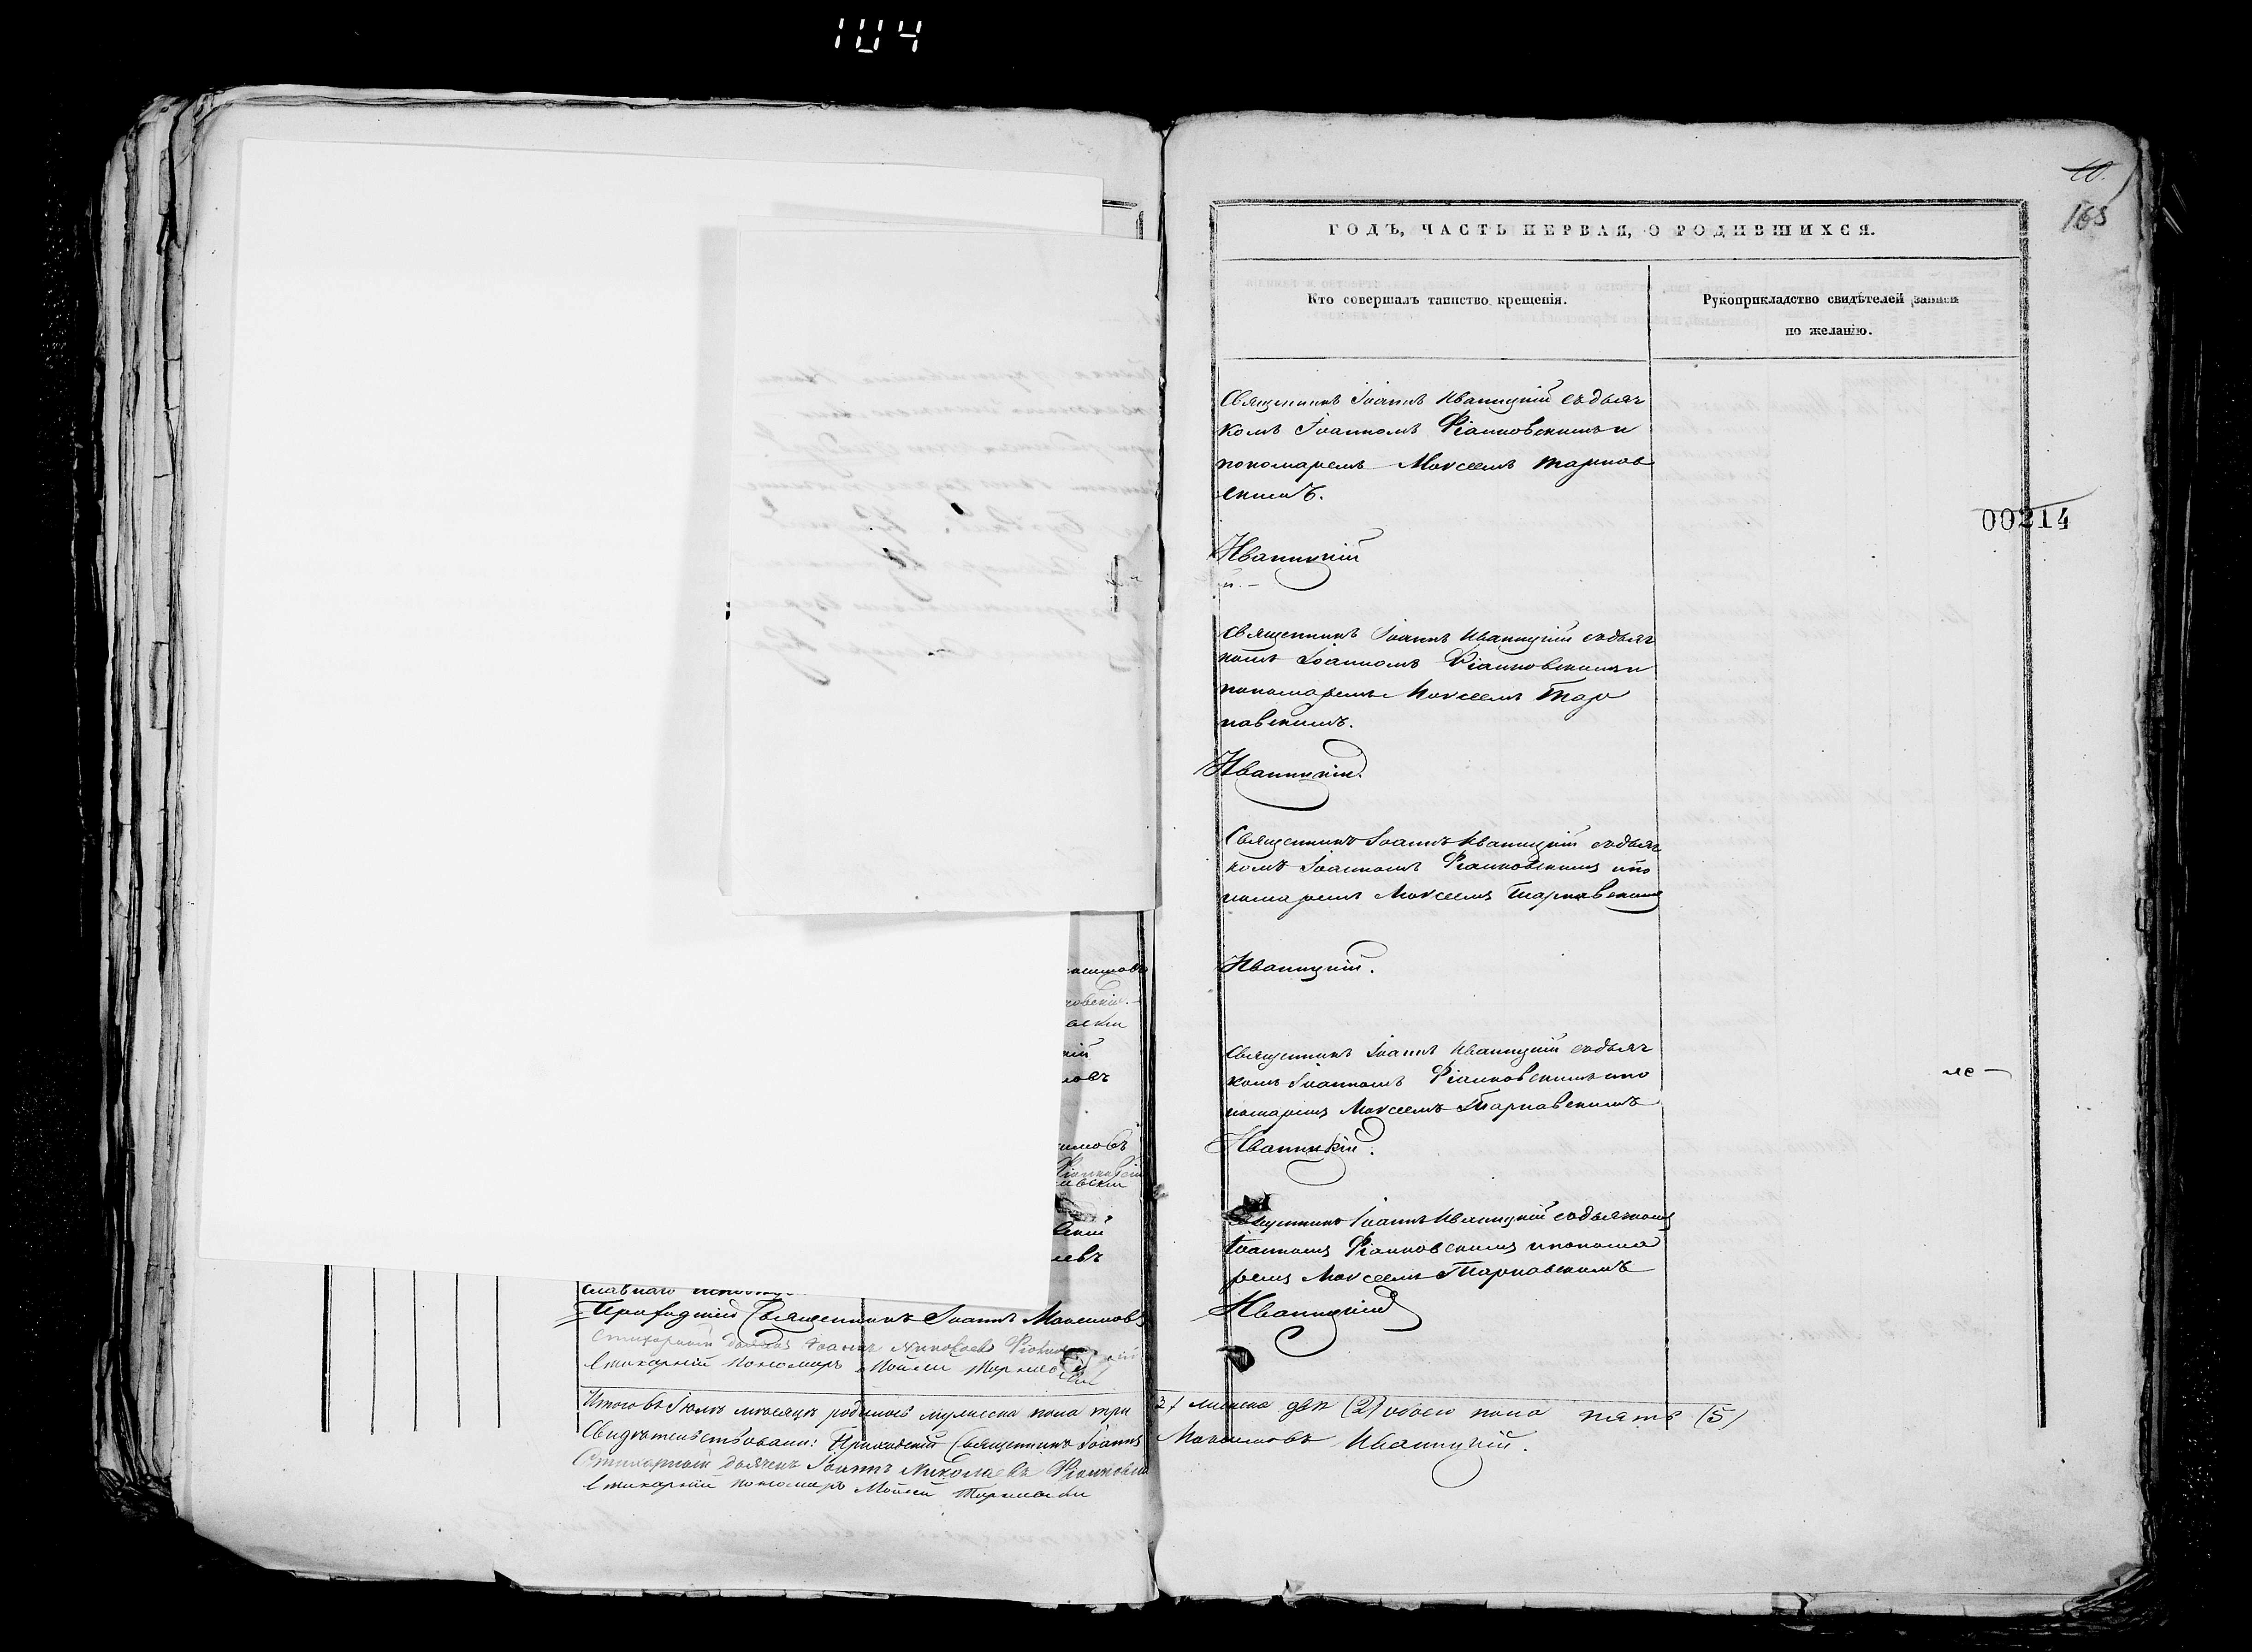 104
10.
163
ГОДЪ, ЧАСТЬ ПЕРВАЯ, О РОДИВШИХСЯ.
Кто совершалъ таинство крещенія.
Рукоприкладство свидѣтелей записи
по желанію.
Священникъ Іоаннъ Иваницкій съ дьяч
комъ Іоанномъ Ріанновскимъ и
пономаремъ Моѵсеемъ Тарнав
скимъ.
00214
Иваницкій
Священникъ Іоаннъ Иваницкій съ дьяч
комъ Іоанномъ Ріанновскимъ и
пономаремъ Моѵсеемъ Тар
навскимъ.
Иваницкій.
Священникъ Іоаннъ Иваницкій съ дьяч
комъ Іоанномъ Ріанновскимъ и по
номаремъ Моѵсеемъ Тарнавскимъ
Иваницкій.
Священникъ Іоаннъ Иваницкій съ дьяч
комъ Іоанномъ Ріанновскимъ и по
номаремъ Моѵсеемъ Тарнавскимъ
Иваницкій.
Священникъ Іоаннъ Иваницкій съ дьячкомъ
Іоанномъ Ріанновскимъ и понома
ремъ Моѵсеемъ Тарнавскимъ
Иваницкій
славнаго
Приходскій Священникъ Іоаннъ Максимовъ
Стихарный Іоаннъ Николаевъ
Стихарній Пономаръ Мойсей
Итого въ Іюлѣ мѣсяцѣ родилось мужеска пола три (3) женска двѣ (2) обоего пола пять (5)
Свидѣтельствовали: Приходскій Священникъ Іоаннъ Максимовъ Иваницкій.
Стихарный дьячекъ Іоаннъ Николаевъ
Стихарній Пономаръ Мойсей Тарнавски